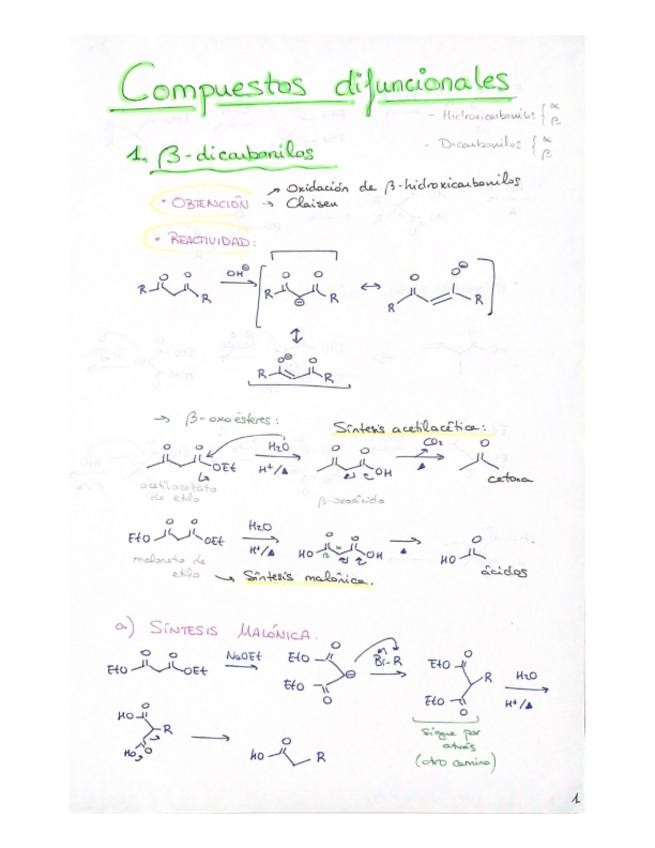 Compuestos difuncionales
- Hidroxicarbonilos { α β
- Dicarbonilos { α β
1. β-dicarbonilos
• OBTENCIÓN → Oxidación de β-hidroxicarbonilos
→ Claisen
• REACTIVIDAD:
R O O R OH⊖ R O O R ⊖ ↔ R O O⊖ R
R O⊖ O R
→ β-oxoésteres:
Síntesis acetilacética:
O O OEt H2O H+/Δ O O OH CO2 Δ O
acetilacetato de etilo
β-oxoácido
cetona
EtO O O OEt H2O H+/Δ HO O O OH Δ HO O
malonato de etilo
→ Síntesis malónica.
ácidos
a) SÍNTESIS MALÓNICA.
EtO O O OEt NaOEt EtO O EtO O ⊖ Br-R EtO O R EtO O H2O H+/Δ
Sigue por atrás
(otro camino)
HO O R HO O → HO O R
1